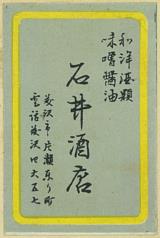 和洋酒類
味噌醤油
石井酒店
藤沢市片瀬東り町
電話藤沢四六五七